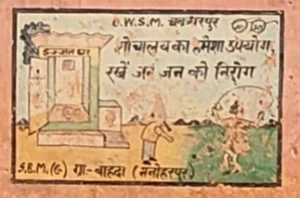 D.W.S.M. चक्रधरपुर
इज्जत घर
शौचालय का हमेशा उपयोग,
रखें जन जन को निरोग
S.B.M.(G) ग्रा-बाहदा (मनोहरपुर)